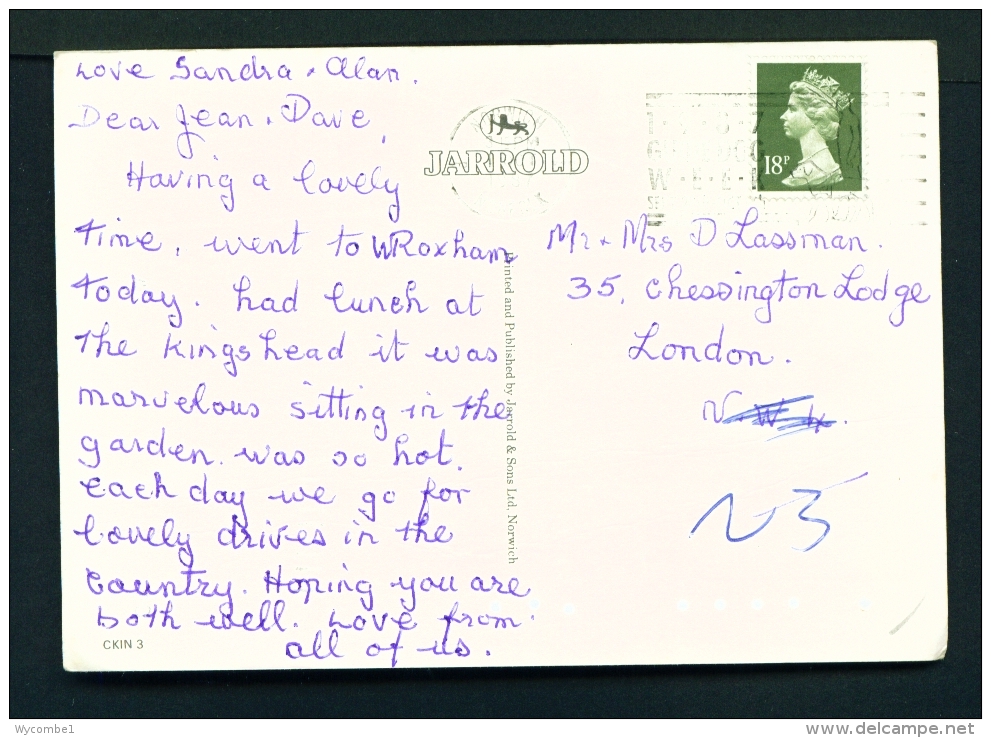 Love Sandra + Alan.
Dear Jean + Dave,
Having a lovely
Time, went to WRoxham
Today. had lunch at
The Kings head it was
marvelous sitting in the
garden. was so hot.
Each day we go for
lovely drives in the
Country. Hoping you are
both well. Love from
all of us.
CKIN 3
JARROLD
Printed and Published by Jarrold & Sons Ltd, Norwich
18P
Mr + Mrs D Lassman.
35, Chessington Lodge
London.
N.W.4.
N3
Wycombe1
www.delcampe.net